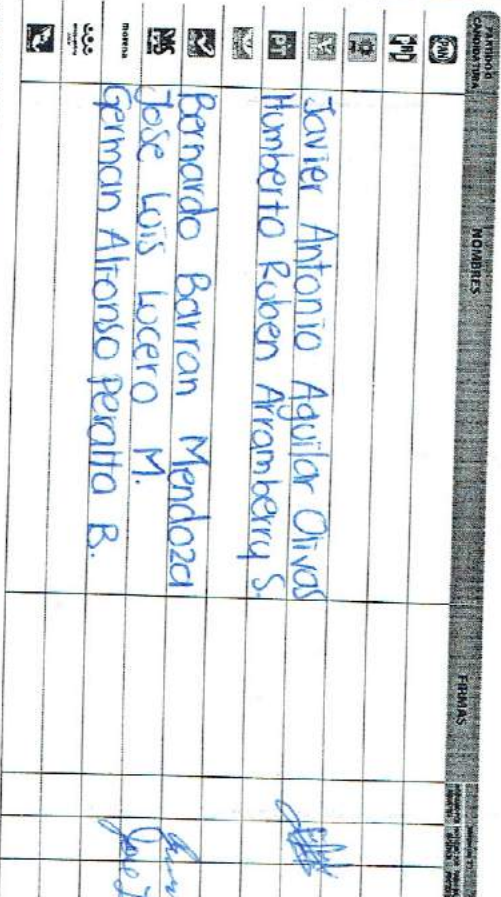 PARTIDO O
CANDIDATURA
NOMBRES
FIRMAS
PAN
PRD
Javier Antonio Aguilar Olivas
PT
Humberto Ruben Arramberry S.
Bernardo Barran Mendoza
MC
Jose Luis Lucero M.
morena
German Alfonso Peralta B.